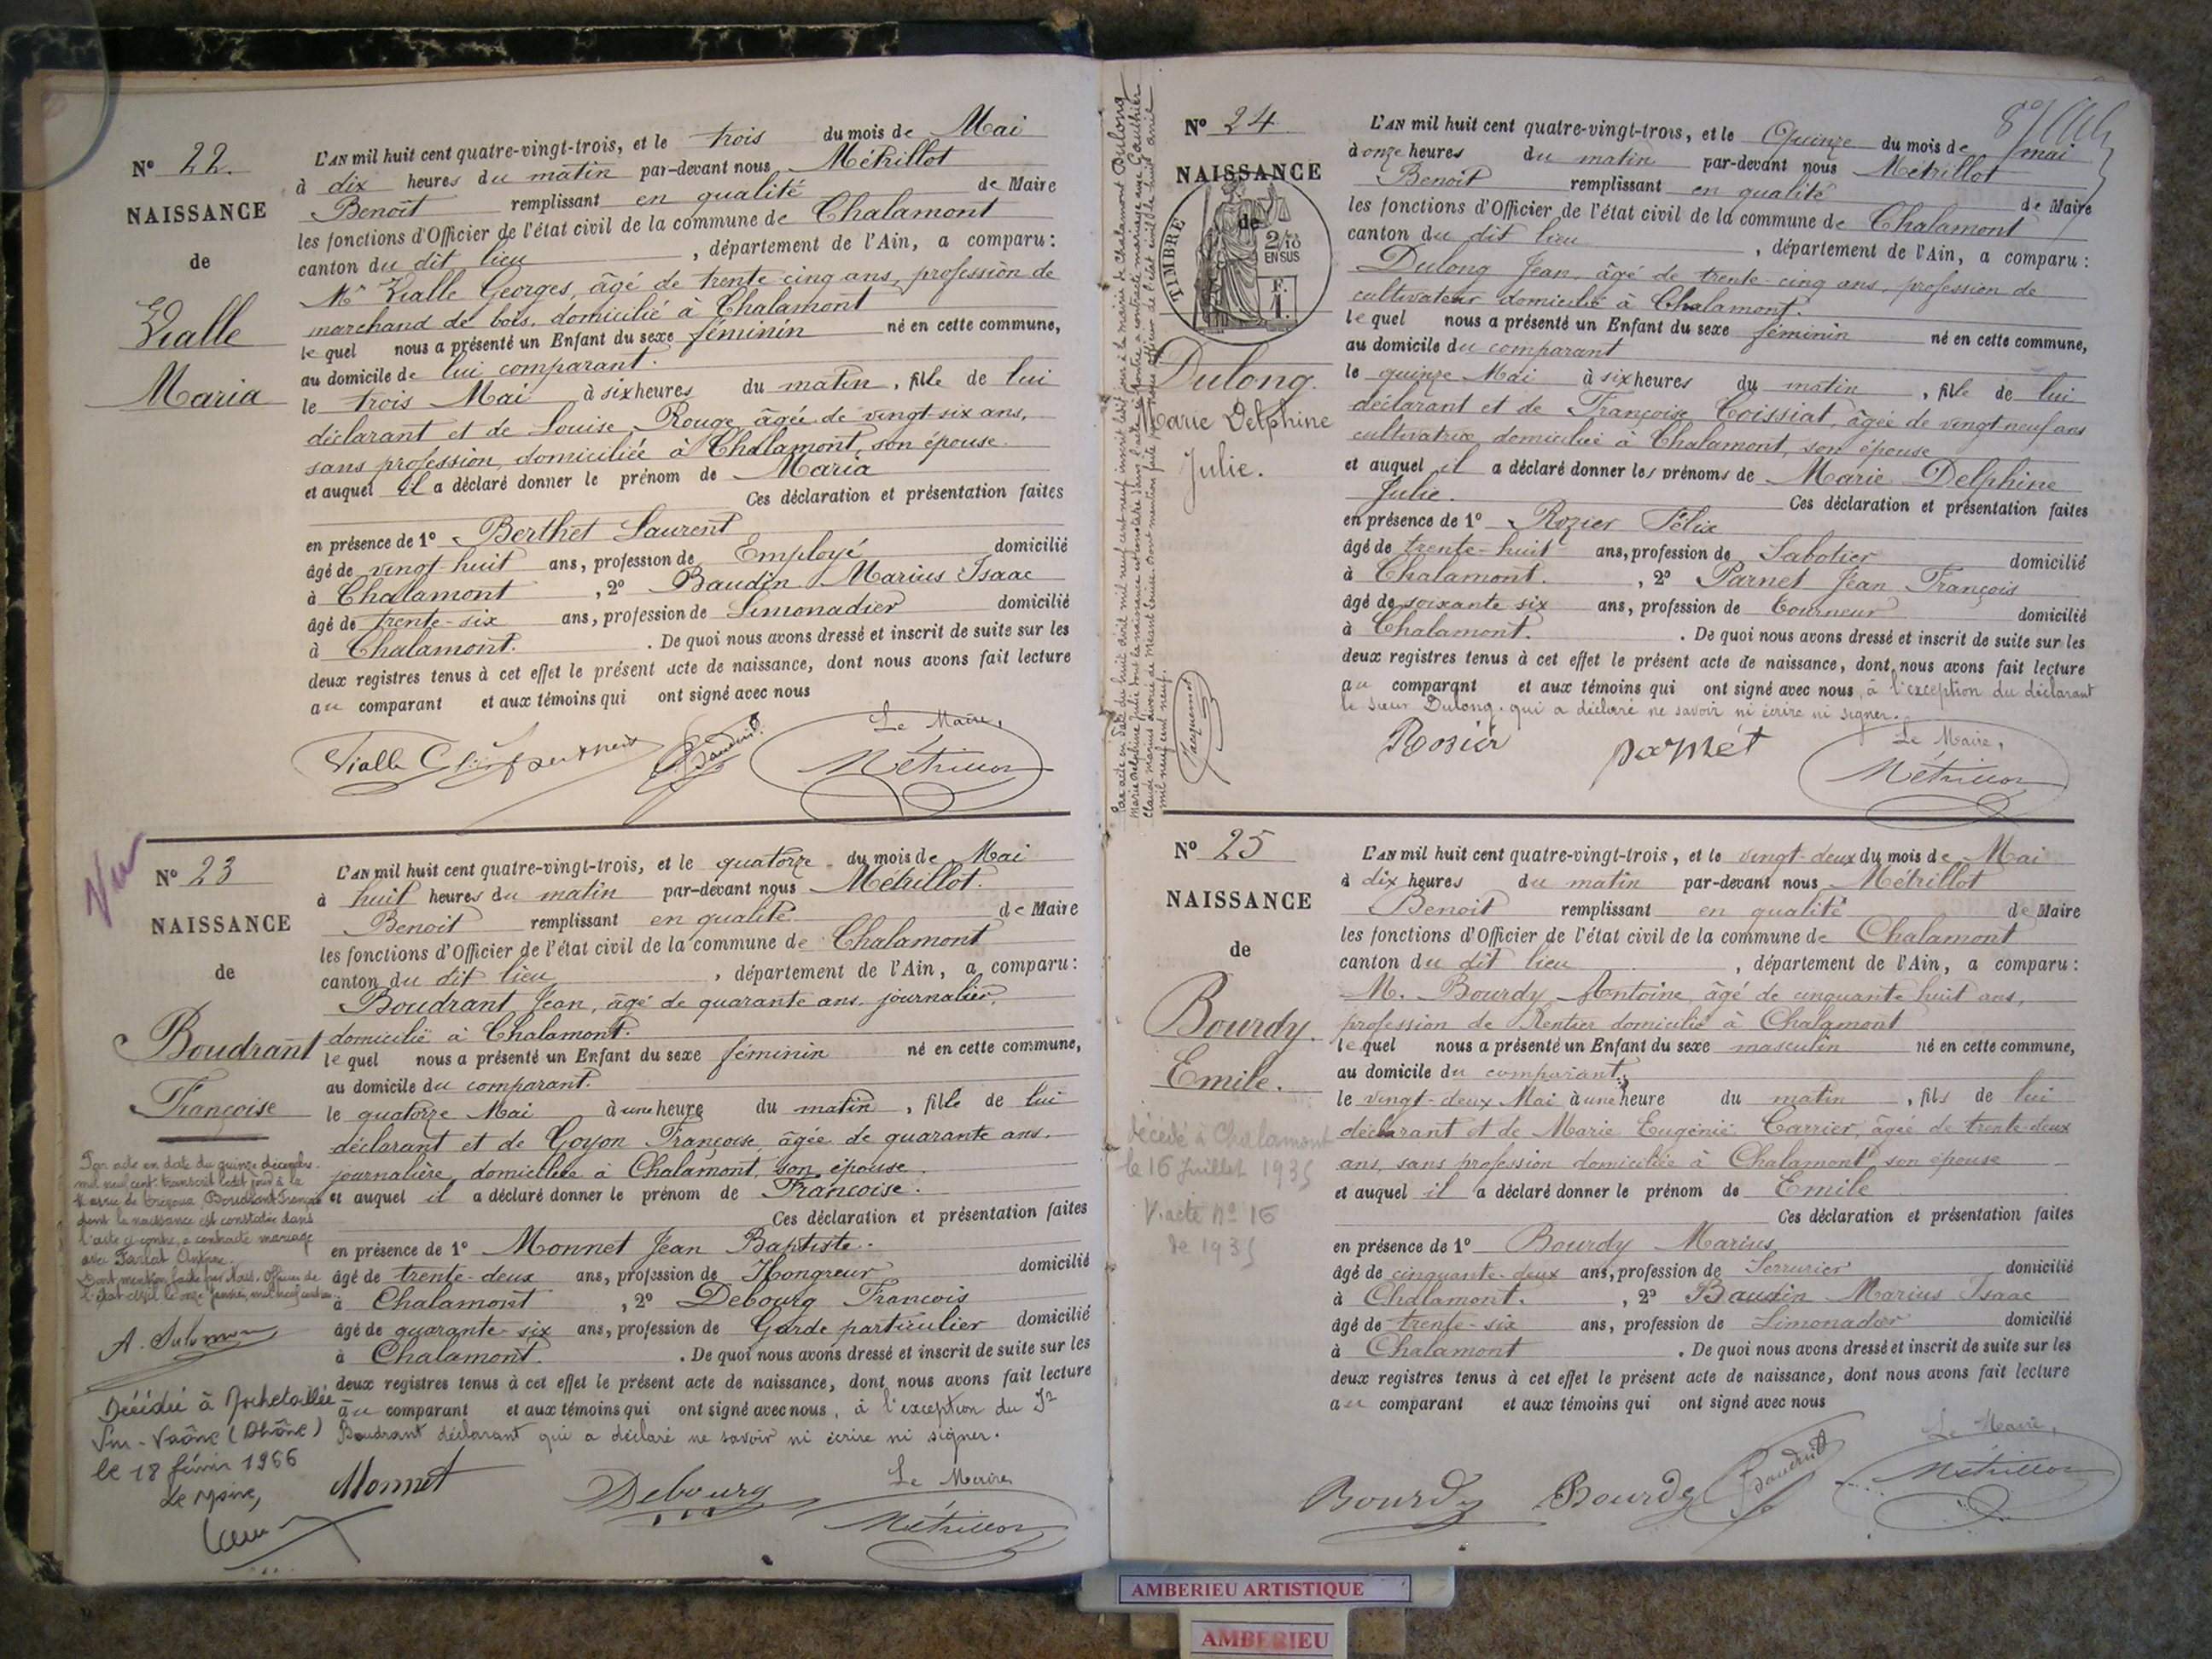 N° 22.
NAISSANCE
de
Vialle
Maria
L'AN mil huit cent quatre-vingt-trois, et le trois du mois de Mai
à dix heures du matin par-devant nous Métrillot
Benoit remplissant en qualité de Maire
les fonctions d'Officier de l'état civil de la commune de Chalamont
canton du dit lieu, département de l'Ain, a comparu:
Mr Vialle Georges, âgé de trente-cinq ans, profession de
marchand de bois, domicilié à Chalamont
lequel nous a présenté un Enfant du sexe féminin né en cette commune,
au domicile de lui comparant.
le trois Mai à six heures du matin, fille de lui
déclarant et de Louise Rouge âgée de vingt-six ans,
sans profession, domiciliée à Chalamont, son épouse.
et auquel il a déclaré donner le prénom de Maria
Ces déclaration et présentation faites
en présence de 1° Berthet Laurent
âgé de vingt-huit ans, profession de Employé domicilié
à Chalamont, 2° Baudin Marius Isaac
âgé de trente-six ans, profession de Limonadier domicilié
à Chalamont. De quoi nous avons dressé et inscrit de suite sur les
deux registres tenus à cet effet le présent acte de naissance, dont nous avons fait lecture
au comparant et aux témoins qui ont signé avec nous
Le Maire,
Vialle Baudin Métrillot
Vu
N° 23
NAISSANCE
de
Boudrant
Françoise
L'AN mil huit cent quatre-vingt-trois, et le quatorze du mois de Mai
à huit heures du matin par-devant nous Métrillot.
Benoit remplissant en qualité de Maire
les fonctions d'Officier de l'état civil de la commune de Chalamont
canton du dit lieu, département de l'Ain, a comparu:
Boudrant Jean, âgé de quarante ans, journalier,
domicilié à Chalamont.
lequel nous a présenté un Enfant du sexe féminin né en cette commune,
au domicile du comparant.
le quatorze Mai à une heure du matin, fille de lui
déclarant et de Goyon Françoise âgée de quarante ans.
journalière, domiciliée à Chalamont, son épouse.
et auquel il a déclaré donner le prénom de Françoise.
Ces déclaration et présentation faites
en présence de 1° Monnet Jean Baptiste.
âgé de trente-deux ans, profession de Hongreur domicilié
à Chalamont, 2° Debourg François
âgé de quarante-six ans, profession de Garde particulier domicilié
à Chalamont. De quoi nous avons dressé et inscrit de suite sur les
deux registres tenus à cet effet le présent acte de naissance, dont nous avons fait lecture
au comparant et aux témoins qui ont signé avec nous, à l'exception du Sr
Boudrant déclarant qui a déclaré ne savoir ni écrire ni signer.
Le Maire
Monnet Debourg Métrillot
Par acte en date du quinze décembre
mil neuf cent transcrit ledit jour à la
Mairie de Trévoux, Boudrant Françoise
dont la naissance est constatée dans
l'acte ci-contre, a contracté mariage
avec
Dont mention faite par Nous, Officier de
l'état civil le onze Janvier, mil neuf cent un.
Décédée à Rochetaillée
sur-Saône (Rhône)
le 18 février 1966
Le Maire,
N° 24
NAISSANCE
de
TIMBRE
2/10
EN SUS
F.
1.
Dulong.
Marie Delphine
Julie.
Par acte en date du huit avril mil neuf cent neuf inscrit ledit jour à la mairie de Chalamont Dulong
Marie Delphine Julie dont la naissance est constatée dans l'acte ci-contre a contracté mariage avec Gauthier
Claude Marius
mil neuf cent neuf.
Jacquemet
L'AN mil huit cent quatre-vingt-trois, et le Quinze du mois de mai
à onze heures du matin par-devant nous Métrillot
Benoit remplissant en qualité de Maire
les fonctions d'Officier de l'état civil de la commune de Chalamont
canton du dit lieu, département de l'Ain, a comparu:
Dulong Jean, âgé de trente-cinq ans, profession de
cultivateur domicilié à Chalamont.
lequel nous a présenté un Enfant du sexe féminin né en cette commune,
au domicile du comparant
le quinze Mai à six heures du matin, fille de lui
déclarant et de Françoise Coissiat, âgée de vingt neuf ans
cultivatrice domiciliée à Chalamont, son épouse
et auquel il a déclaré donner les prénoms de Marie Delphine
Julie. Ces déclaration et présentation faites
en présence de 1° Rozier Félix
âgé de trente-huit ans, profession de Sabotier domicilié
à Chalamont., 2° Parnet Jean François
âgé de soixante six ans, profession de tourneur domicilié
à Chalamont. De quoi nous avons dressé et inscrit de suite sur les
deux registres tenus à cet effet le présent acte de naissance, dont nous avons fait lecture
au comparant et aux témoins qui ont signé avec nous, à l'exception du déclarant
le sieur Dulong. qui a déclaré ne savoir ni écrire ni signer.
Le Maire,
Rosier parnet Métrillot
N° 25
NAISSANCE
de
Bourdy.
Emile.
décédé à Chalamont
le 16 Juillet 1935
V. acte N° 16
de 1935
L'AN mil huit cent quatre-vingt-trois, et le vingt-deux du mois de Mai
à dix heures du matin par-devant nous Métrillot
Benoit remplissant en qualité de Maire
les fonctions d'Officier de l'état civil de la commune de Chalamont
canton du dit lieu, département de l'Ain, a comparu:
M. Bourdy Antoine, âgé de cinquante huit ans,
profession de Rentier domicilié à Chalamont
lequel nous a présenté un Enfant du sexe masculin né en cette commune,
au domicile du comparant.
le vingt-deux Mai à une heure du matin, fils de lui
déclarant et de Marie Eugénie Carrier, âgée de trente-deux
ans, sans profession domiciliée à Chalamont son épouse
et auquel il a déclaré donner le prénom de Emile
Ces déclaration et présentation faites
en présence de 1° Bourdy Marius
âgé de cinquante-deux ans, profession de Serrurier domicilié
à Chalamont., 2° Baudin Marius Isaac
âgé de trente-six ans, profession de Limonadier domicilié
à Chalamont. De quoi nous avons dressé et inscrit de suite sur les
deux registres tenus à cet effet le présent acte de naissance, dont nous avons fait lecture
au comparant et aux témoins qui ont signé avec nous
Le Maire,
Bourdy Bourdy Baudin Métrillot
AMBERIEU ARTISTIQUE
AMBERIEU